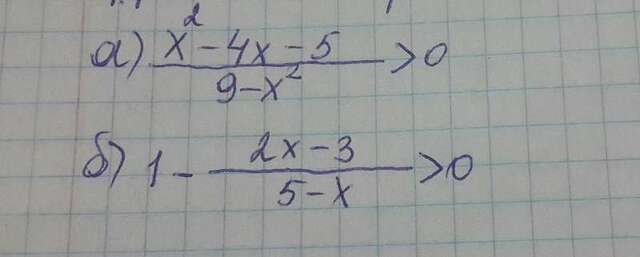 а) (x² - 4x - 5)/(9 - x²) > 0
б) 1 - (2x - 3)/(5 - x) > 0